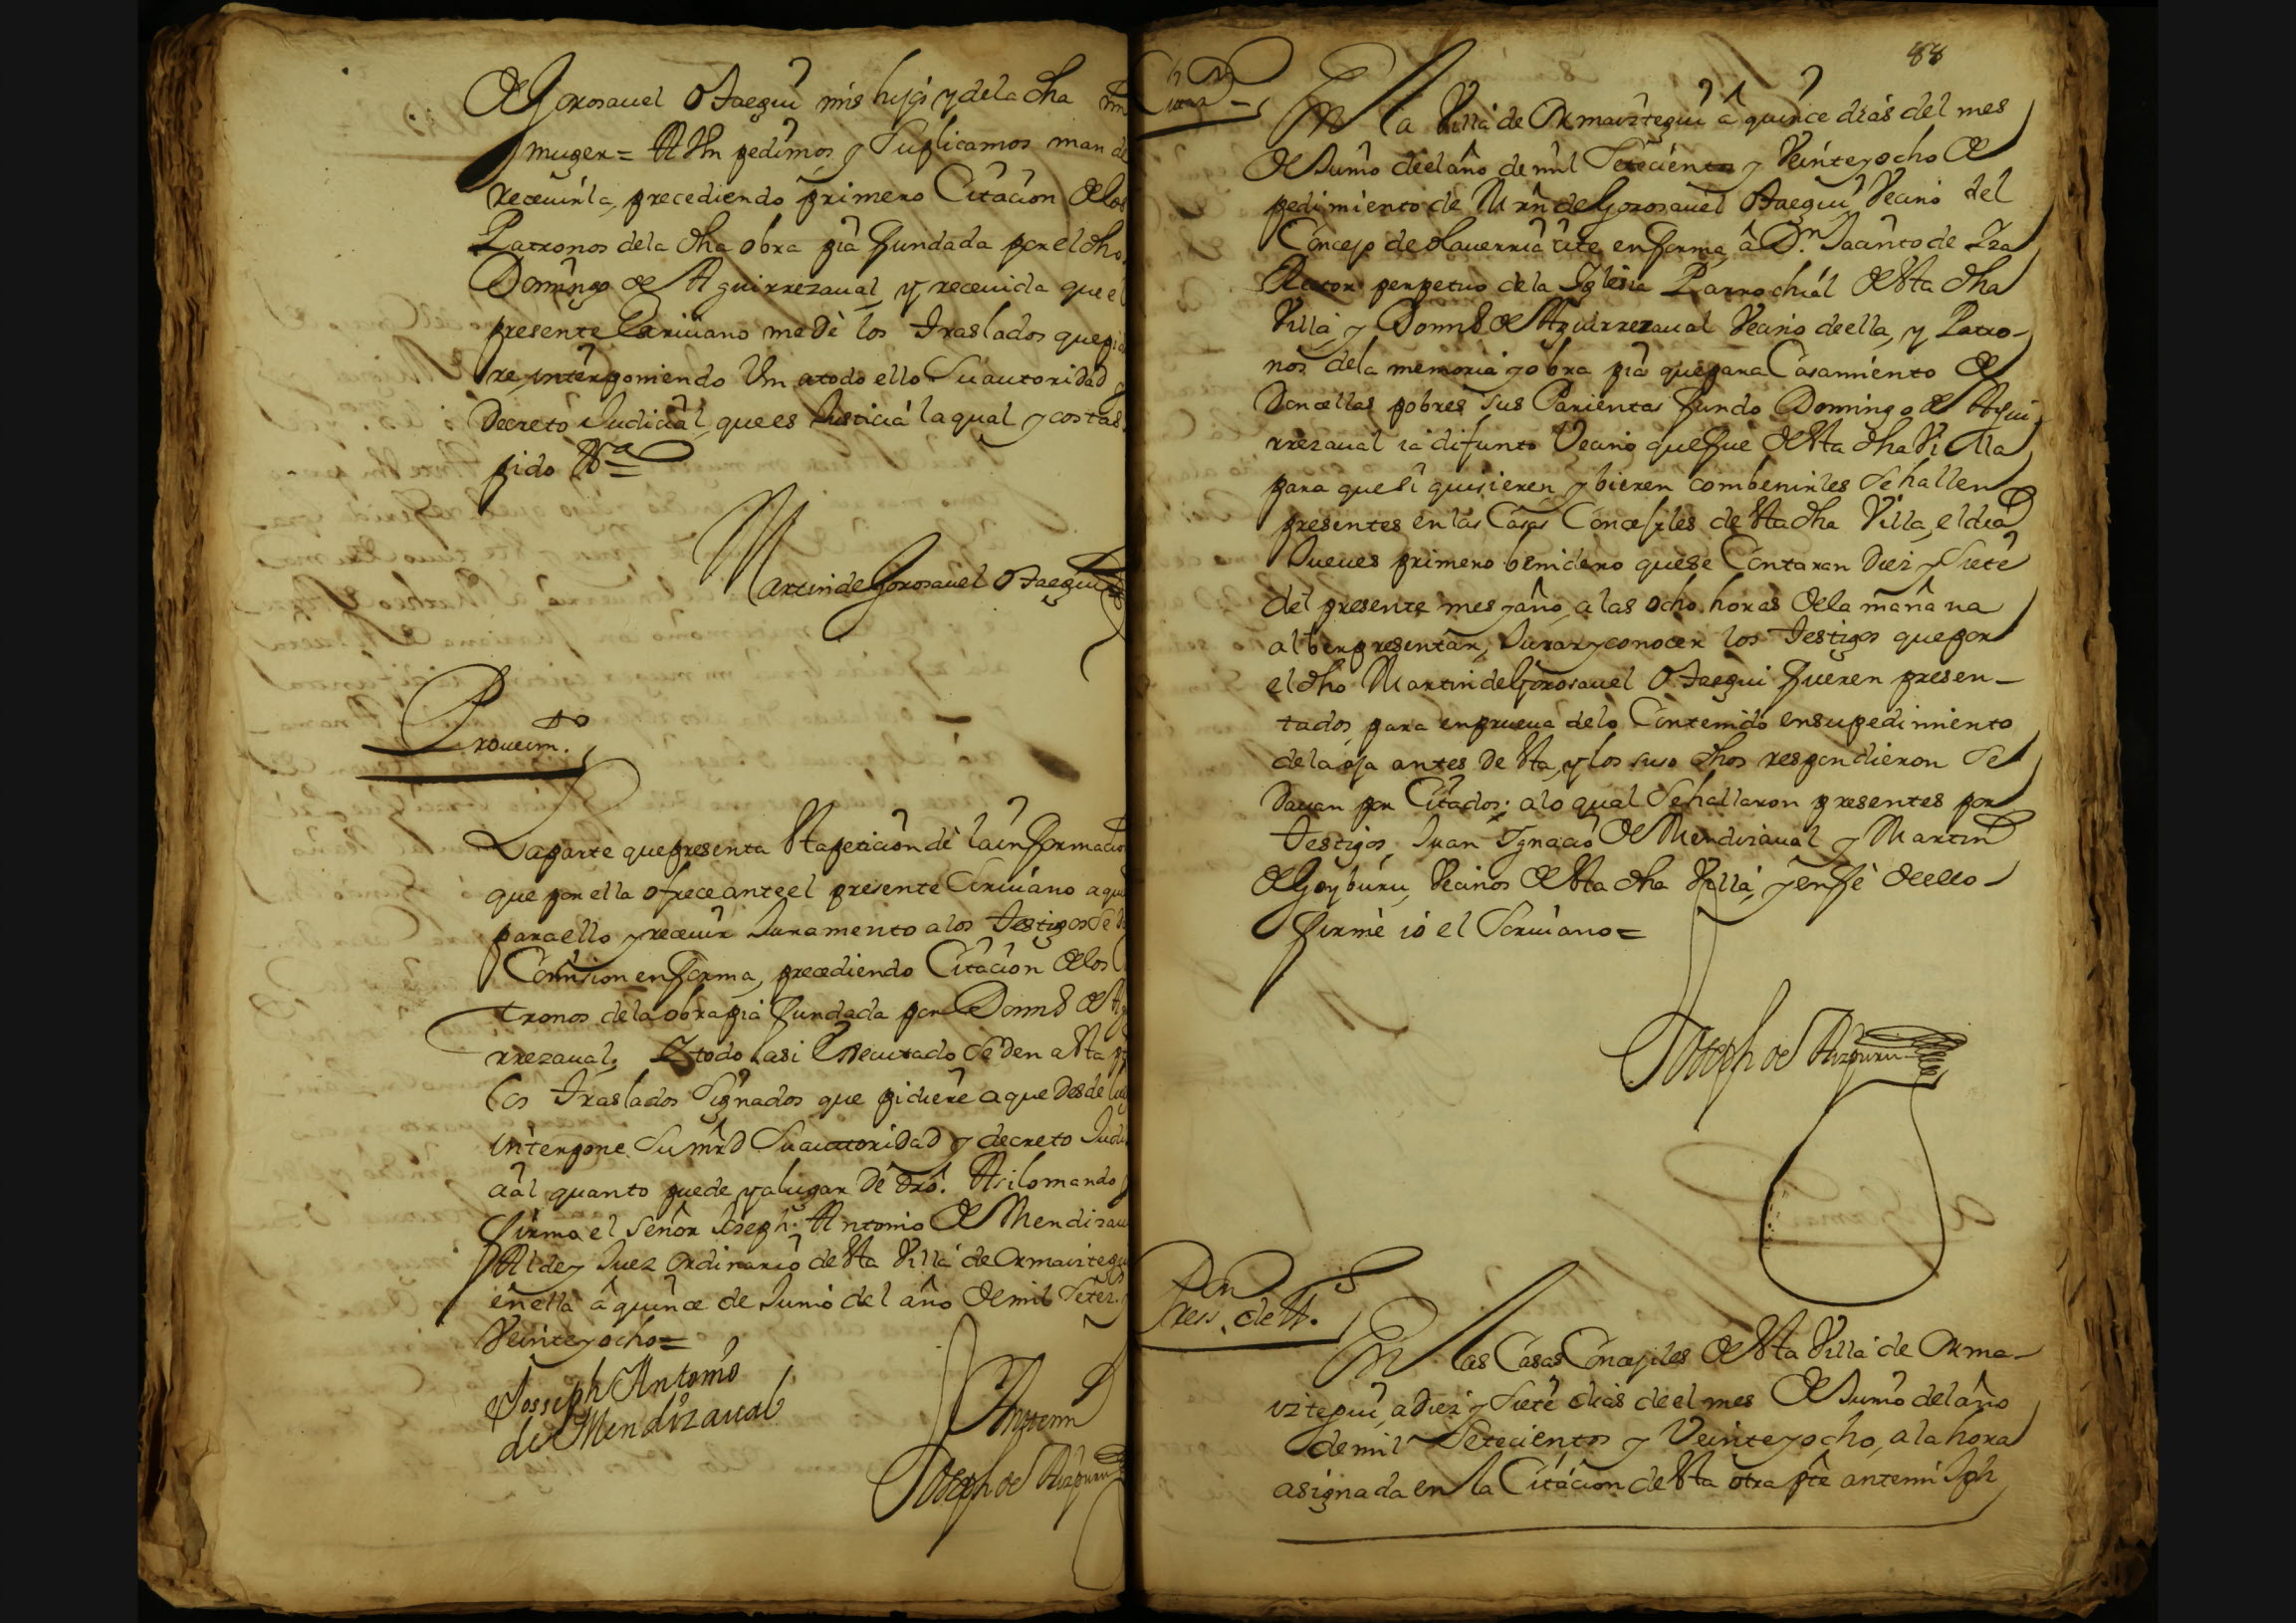 de Gorosauel Otaegui mis hijos y de la dha mi
muger = A Vm pedimos y suplicamos man de
receuirla, precediendo primero Citacion de los
Patronos de la dha obra pia fundada por el dho
Domingo de Aguirrezaual, y receuida que el
presente Escriuano me de los traslados que pi
re interponiendo Vm a todo ello su autoridad y
Decreto Judicial, que es Justicia la qual y costas
pido Va =
Martin de Gorosauel Otaegui
Proueim.to
La parte que presenta esta peticion de la informacion
que por ella ofrece ante el presente Escriuano a qu
para ello y receuir Juramento a los testigos se d
Comision en forma, precediendo Citacion de los
tronos de la obra pia fundada por Domo de Ag
rrezaual, Y todo lasi executado se den a esta p
los traslados signados que pidiere a que desde lu
interpone su mrd su autoridad y decreto Judi
aal quanto puede y a lugar de dro. Asi lo mando y
firma el señor Joseph Antonio de Mendizau
Alde y Juez ordinario de esta Villa de Ormaiztegui
en ella â quince de Junio del año de mil setez.s
Veinte y ocho =
Josseph Antonio
de Mendizaual
Ante mi
Joseph de Aizpuru
88
Citaz.on
En la Villa de Ormaiztegui â quince dias del mes
de Junio de el año de mil setecientos y Veinte y ocho de
pedimiento de Mrn de Gorosauel Otaegui Vecino del
Concejo de olauerria cite en forma, â Dn. Jacinto de Iza
Rector perpetuo de la Iglesia Parrochial de esta dha
Villa, y Domo de Aguirrezaual Vecino de ella, y Patro-
nos de la memoria y obra pia que para Casamiento de
Doncellas pobres sus Parientas fundo Domingo de Agui
rrezaual ia difunto Vecino que fue de esta dha Villa
para que si quisieren y bieren combenirles se hallen
presentes en las Casas Concejiles de esta dha Villa, el dia
Jueues primero benidero que se Contaran diez y siete
del presente mes y año, a las ocho horas de la mañana
al ber presentar, Jurar y conocer los testigos que por
el dho Martin de Gorosauel Otaegui fueren presen-
tados para en prueua de lo Contenido en su pedimiento
de la oja antes de esta, y los suso dhos respondieron se
dauan por Citados; a lo qual se hallaron presentes por
testigos, Juan Ignacio de Mendizaual y Martin
de Goyburu, Vecinos de esta dha Villa, y en fè de ello
firmè iò el Scriuano =
Joseph de Aizpuru
Press.on de t.os
En las Casas Concejiles de esta Villa de Orma-
iztegui, a diez y siete dias de el mes de Junio del año
de mil setecientos y Veinte y ocho, a la hora
asignada en la Citacion de esta otra pte ante mi Jph